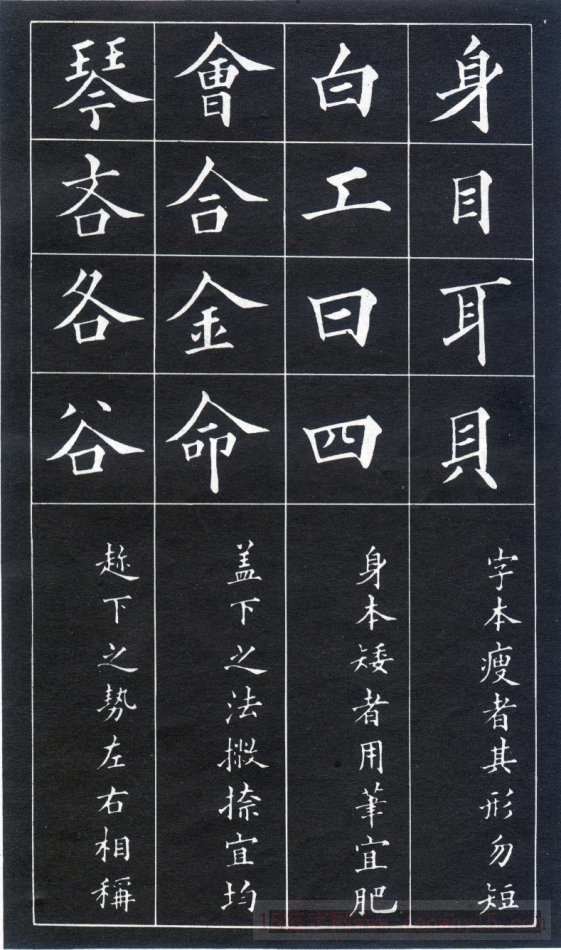 身目耳貝
字本瘦者其形勿短
白工曰四
身本矮者用筆宜肥
會合金命
盖下之法撇捺宜均
琴吝各谷
下之勢左右相稱